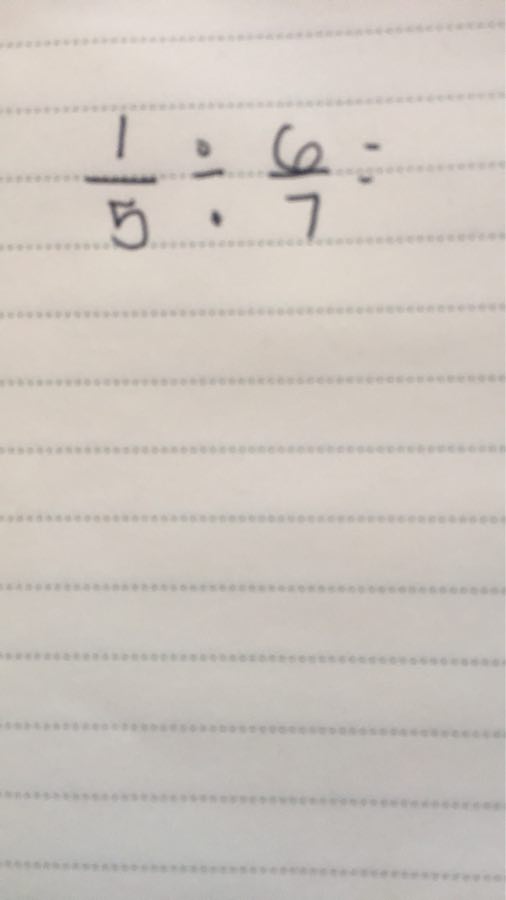 1/5 ÷ 6/7 =